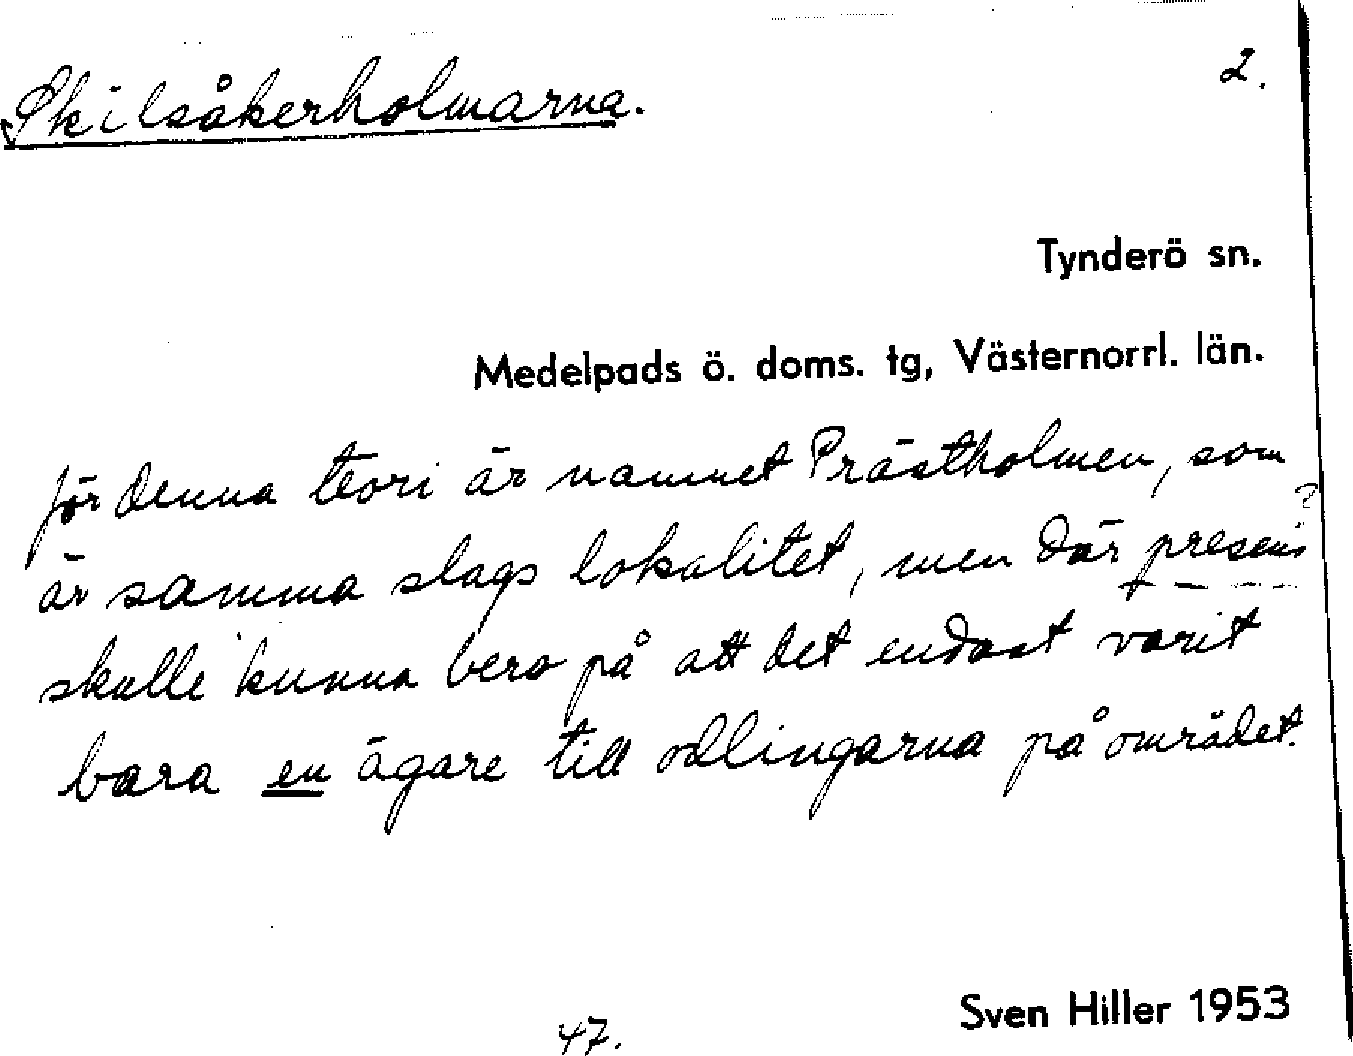 Skilsåkerholmarna.
2.
Tynderö sn.
Medelpads ö. doms. tg, Västernorrl. län.
för denna teori är namnet Prästholmen, som
är samma slags lokalitet, men där presens ?
skulle kunna bero på att det endast varit
bara en ägare till odlingarna på området.
47.
Sven Hiller 1953